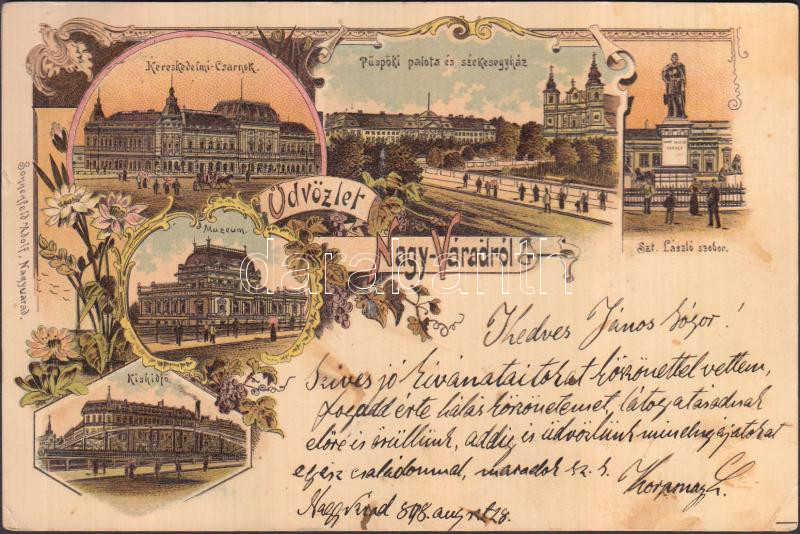 Kereskedelmi-Csarnok.
Püspöki palota és székesegyház
Szt. László szobor.
Üdvözlet
Nagy-Váradról
Muzeum.
Kishidfő.
Sonnenfeld Adolf, Nagyvárad.
darabanth
Kedves János Sógor!
Szives jó kivánataitokat köszönettel vettem,
fogadd érte hálás köszönetemet, látogatásodnak
előre is örülünk, addig is üdvözlünk mindnyájatokat
egész családommal, maradok sz. s.
Nagyvárad 898. aug 28.